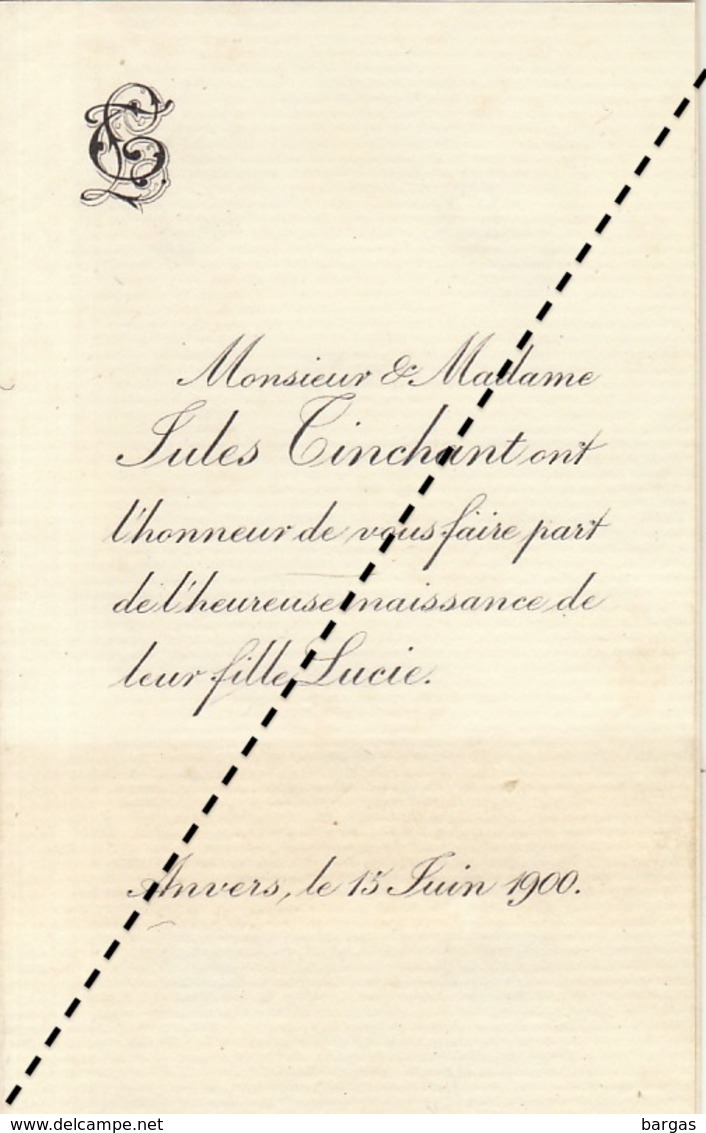 Monsieur & Madame
Jules Tinchant ont
l'honneur de vous faire part
de l'heureuse naissance de
leur fille Lucie.
Anvers, le 15 Juin 1900.
www.delcampe.net
bargas